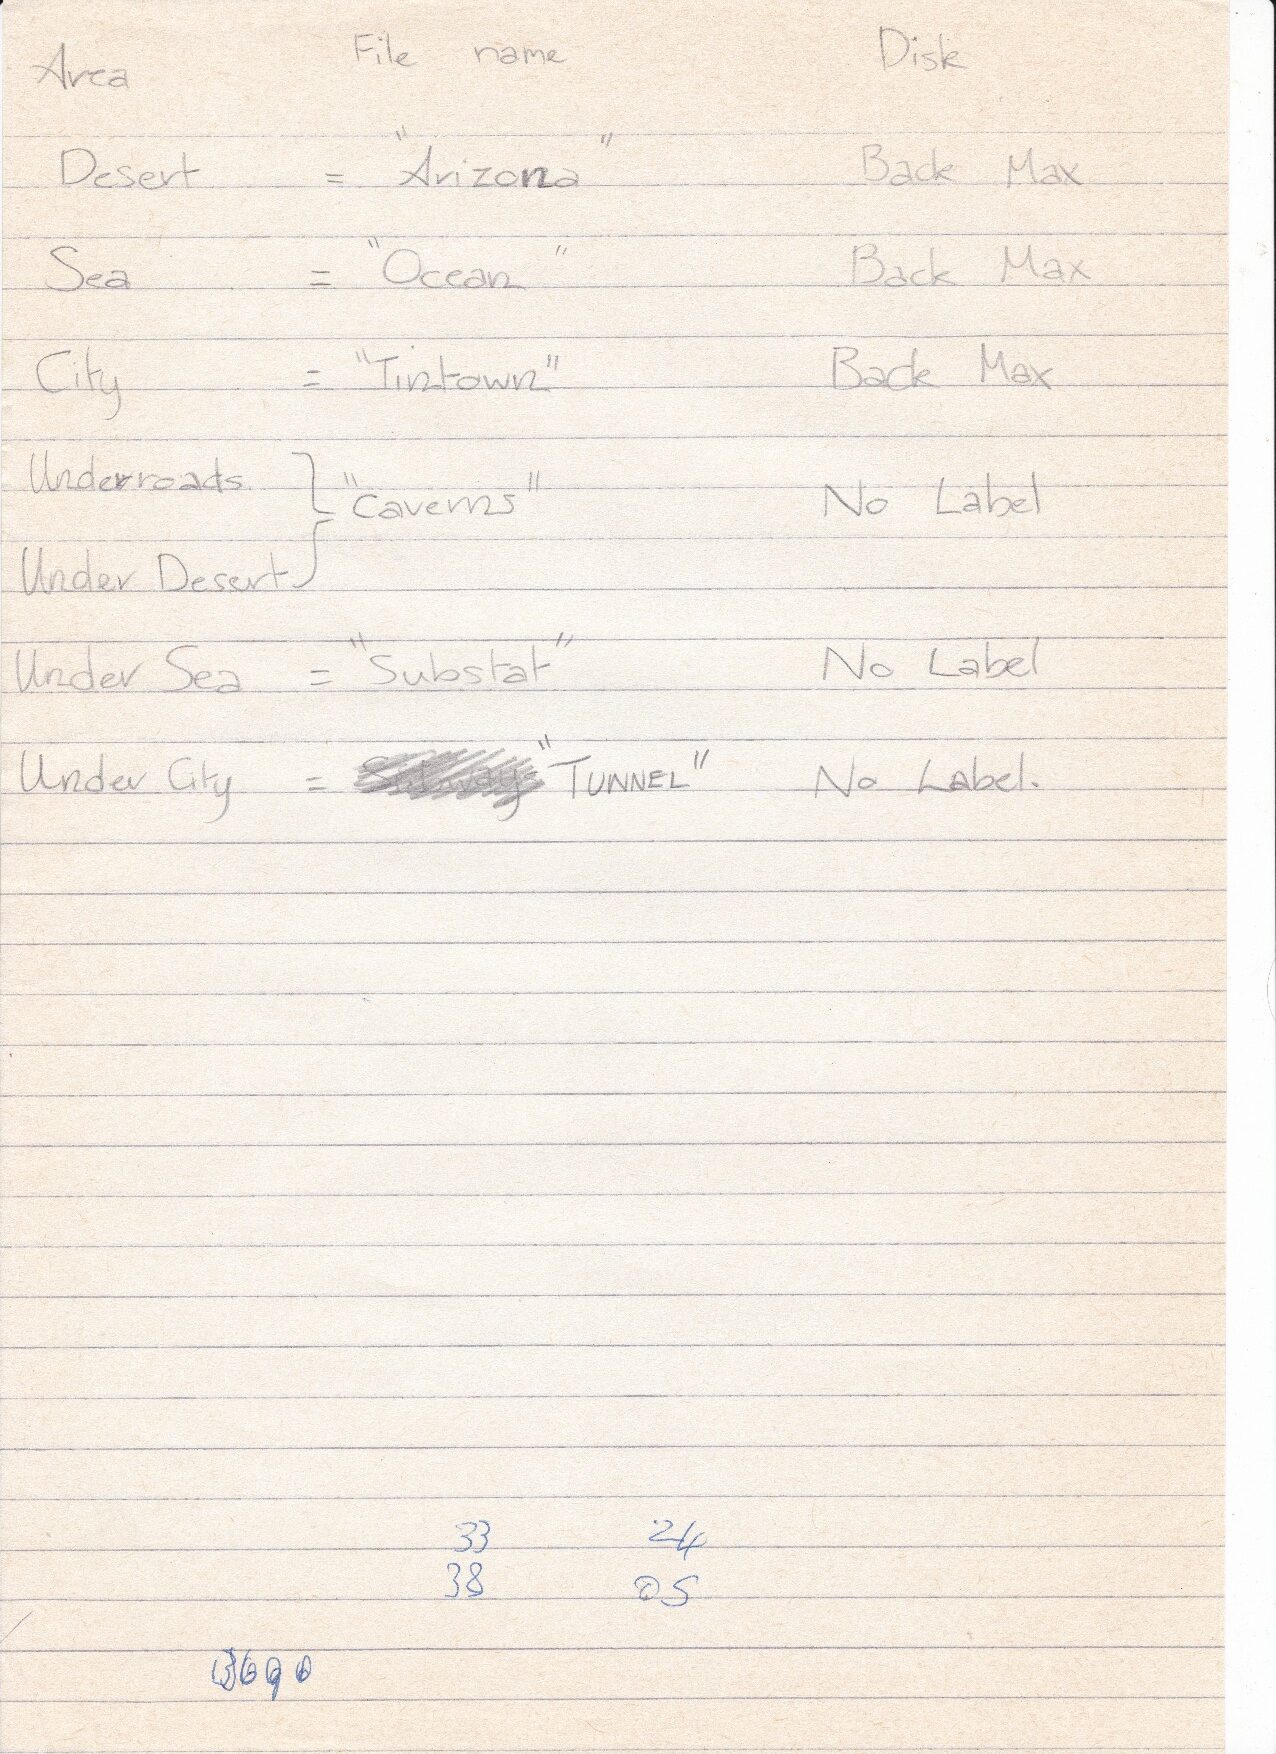 Area File name Disk
Desert = "Arizona" Back Max
Sea = "Ocean" Back Max
City = "Tintown" Back Max
Underroads
"Caverns" No Label
Under Desert
Under Sea = "Substat" No Label
Under City = "TUNNEL" No Label.
33 24
38 05